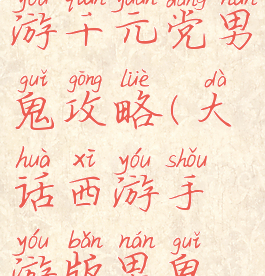 yóu qiān yuán dǎng nán
游千元党男
guǐ gōng lüè dà
鬼攻略(大
huà xī yóu shǒu
话西游手
yóu bǎn nán guǐ
游版男鬼